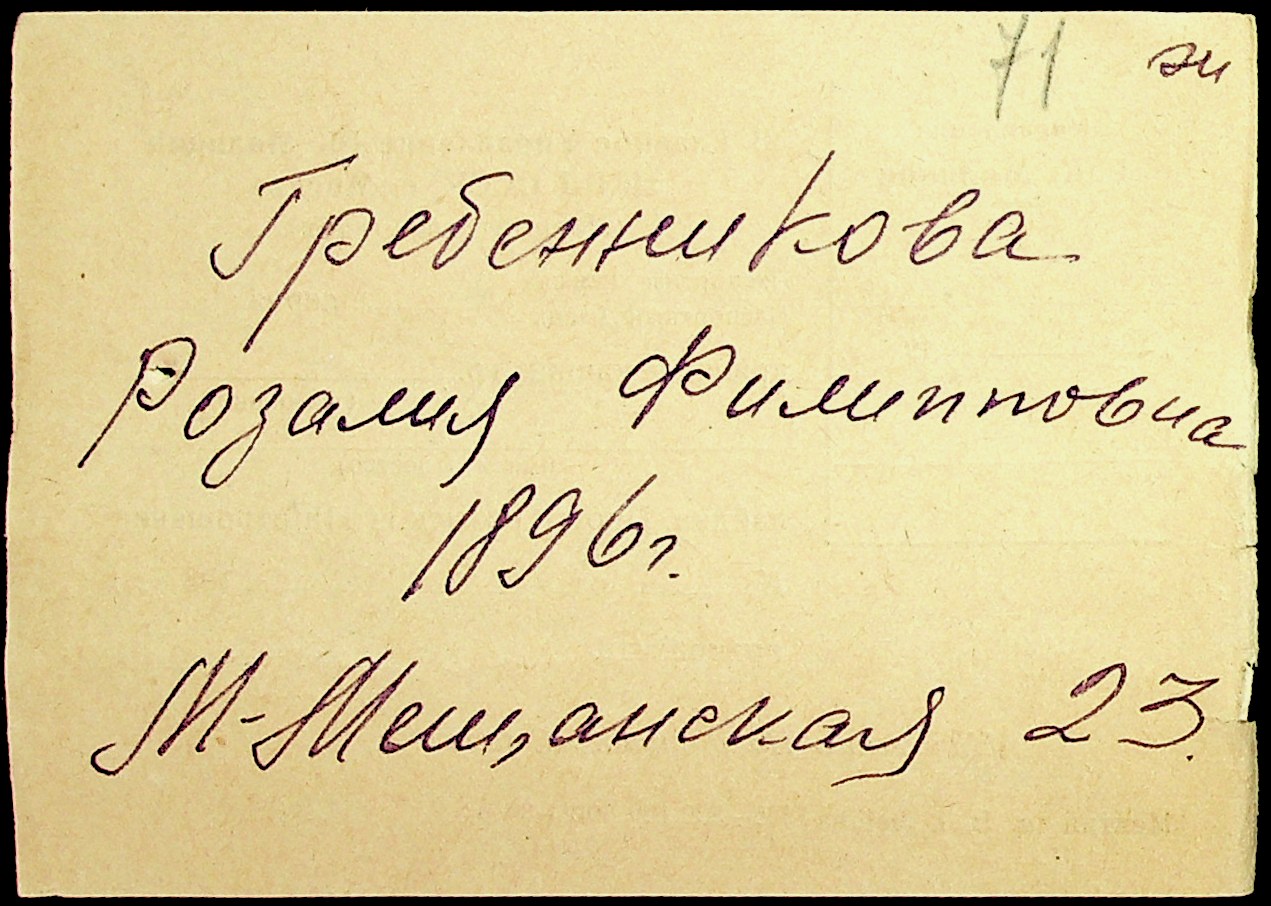 71
Гребенникова
Розалия Филипповна
1896г.
М-Мещанская 23.